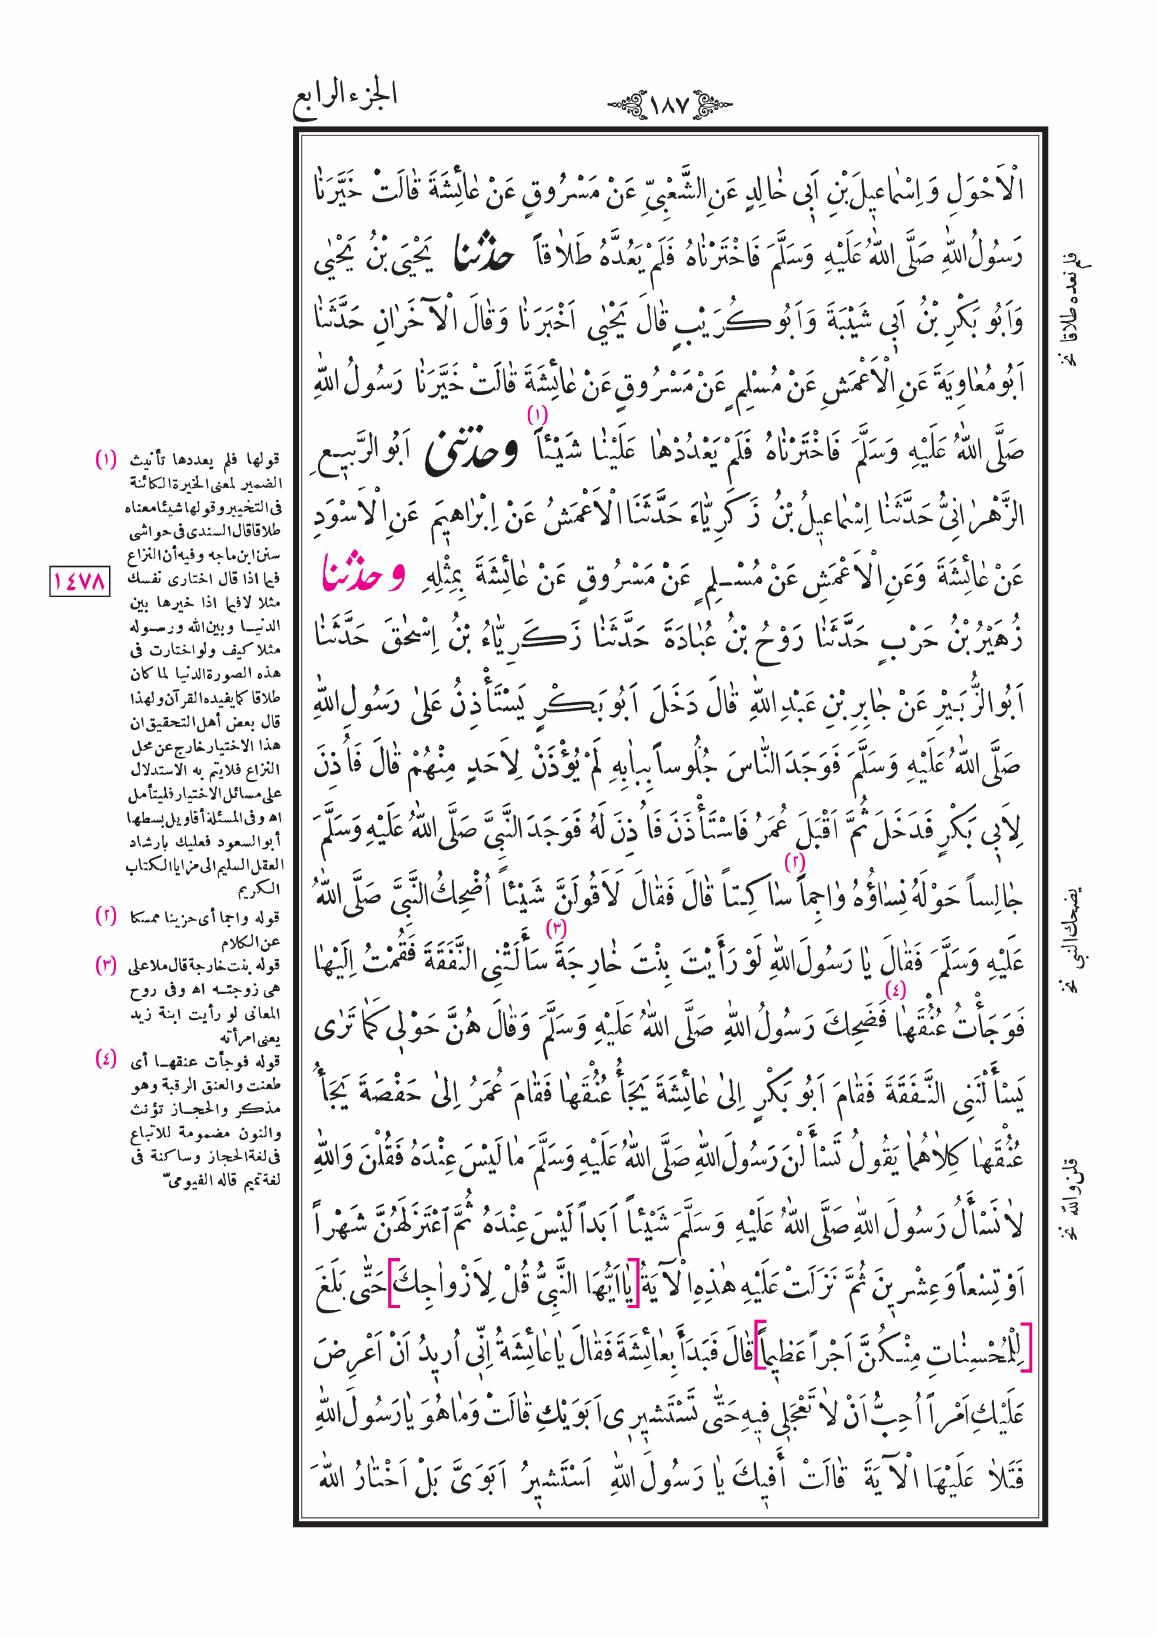 الجزء الرابع
١٨٧
الْاَحْوَلِ وَاِسْمَاعِيلَ بْنِ اَبِى خَالِدٍ عَنِ الشَّعْبِىِّ عَنْ مَسْرُوقٍ عَنْ عَائِشَةَ قَالَتْ خَيَّرَنَا
رَسُولُ اللهِ صَلَّى اللهُ عَلَيْهِ وَسَلَّمَ فَاخْتَرْنَاهُ فَلَمْ يَعُدَّهُ طَلَاقاً حدثنا يَحْيَى بْنُ يَحْيٰى
وَاَبُو بَكْرِ بْنُ اَبِى شَيْبَةَ وَاَبُو كُرَيْبٍ قَالَ يَحْيٰى اَخْبَرَنَا وَقَالَ الْآخَرَانِ حَدَّثَنَا
اَبُو مُعَاوِيَةَ عَنِ الْاَعْمَشِ عَنْ مُسْلِمٍ عَنْ مَسْرُوقٍ عَنْ عَائِشَةَ قَالَتْ خَيَّرَنَا رَسُولُ اللهِ
صَلَّى اللهُ عَلَيْهِ وَسَلَّمَ فَاخْتَرْنَاهُ فَلَمْ يَعْدُدْهَا عَلَيْنَا شَيْئاً (١) وحدثنى اَبُو الرَّبِيعِ
الزَّهْرَانِىُّ حَدَّثَنَا اِسْمَاعِيلُ بْنُ زَكَرِيَّاءَ حَدَّثَنَا الْاَعْمَشُ عَنْ اِبْرَاهِيمَ عَنِ الْاَسْوَدِ
عَنْ عَائِشَةَ وَعَنِ الْاَعْمَشِ عَنْ مُسْلِمٍ عَنْ مَسْرُوقٍ عَنْ عَائِشَةَ بِمِثْلِهِ وحدثنا
زُهَيْرُ بْنُ حَرْبٍ حَدَّثَنَا رَوْحُ بْنُ عُبَادَةَ حَدَّثَنَا زَكَرِيَّاءُ بْنُ اِسْحٰقَ حَدَّثَنَا
اَبُو الزُّبَيْرِ عَنْ جَابِرِ بْنِ عَبْدِ اللهِ قَالَ دَخَلَ اَبُو بَكْرٍ يَسْتَأْذِنُ عَلٰى رَسُولِ اللهِ
صَلَّى اللهُ عَلَيْهِ وَسَلَّمَ فَوَجَدَ النَّاسَ جُلُوساً بِبَابِهِ لَمْ يُؤْذَنْ لِاَحَدٍ مِنْهُمْ قَالَ فَاُذِنَ
لِاَبِى بَكْرٍ فَدَخَلَ ثُمَّ اَقْبَلَ عُمَرُ فَاسْتَأْذَنَ فَاُذِنَ لَهُ فَوَجَدَ النَّبِىَّ صَلَّى اللهُ عَلَيْهِ وَسَلَّمَ
جَالِساً حَوْلَهُ نِسَاؤُهُ وَاجِماً (٢) سَاكِتاً قَالَ فَقَالَ لَاَقُولَنَّ شَيْئاً اُضْحِكُ النَّبِىَّ صَلَّى اللهُ
عَلَيْهِ وَسَلَّمَ فَقَالَ يَا رَسُولَ اللهِ لَوْ رَأَيْتَ بِنْتَ خَارِجَةَ (٣) سَأَلَتْنِى النَّفَقَةَ فَقُمْتُ اِلَيْهَا
فَوَجَأْتُ عُنُقَهَا (٤) فَضَحِكَ رَسُولُ اللهِ صَلَّى اللهُ عَلَيْهِ وَسَلَّمَ وَقَالَ هُنَّ حَوْلِى كَمَا تَرٰى
يَسْأَلْنَنِى النَّفَقَةَ فَقَامَ اَبُو بَكْرٍ اِلٰى عَائِشَةَ يَجَأُ عُنُقَهَا فَقَامَ عُمَرُ اِلٰى حَفْصَةَ يَجَأُ
عُنُقَهَا كِلَاهُمَا يَقُولُ تَسْأَلْنَ رَسُولَ اللهِ صَلَّى اللهُ عَلَيْهِ وَسَلَّمَ مَا لَيْسَ عِنْدَهُ فَقُلْنَ وَاللهِ
لَا نَسْأَلُ رَسُولَ اللهِ صَلَّى اللهُ عَلَيْهِ وَسَلَّمَ شَيْئاً اَبَداً لَيْسَ عِنْدَهُ ثُمَّ اعْتَزَلَهُنَّ شَهْراً
اَوْ تِسْعاً وَعِشْرِينَ ثُمَّ نَزَلَتْ عَلَيْهِ هٰذِهِ الْآيَةُ [يَا اَيُّهَا النَّبِىُّ قُلْ لِاَزْوَاجِكَ] حَتّٰى بَلَغَ
[لِلْمُحْسِنَاتِ مِنْكُنَّ اَجْراً عَظِيماً] قَالَ فَبَدَأَ بِعَائِشَةَ فَقَالَ يَا عَائِشَةُ اِنِّى اُرِيدُ اَنْ اَعْرِضَ
عَلَيْكِ اَمْراً اُحِبُّ اَنْ لَا تَعْجَلِى فِيهِ حَتّٰى تَسْتَشِيرِى اَبَوَيْكِ قَالَتْ وَمَا هُوَ يَا رَسُولَ اللهِ
فَتَلَا عَلَيْهَا الْآيَةَ قَالَتْ أَفِيكَ يَا رَسُولَ اللهِ اَسْتَشِيرُ اَبَوَىَّ بَلْ اَخْتَارُ اللهَ
فلم نعده طلاقا نخ
يضحك النبى نخ
قلن والله نخ
١٤٧٨
(١) قولها فلم يعددها تأنيث
الضمير لمعنى الخيرة الكائنة
فى التخيير وقولها شيئا معناه
طلاقا قال السندى فى حواشى
سنن ابن ماجه وفيه أن النزاع
فيما اذا قال اختارى نفسك
مثلا لا فيما اذا خيرها بين
الدنيا وبين الله ورسوله
مثلا كيف ولو اختارت فى
هذه الصورة الدنيا لما كان
طلاقا كما يفيده القرآن ولهذا
قال بعض أهل التحقيق ان
هذا الاختيار خارج عن محل
النزاع فلا يتم به الاستدلال
على مسائل الاختيار فليتأمل
اه وفى المسئلة أقاويل بسطها
أبو السعود فعليك بارشاد
العقل السليم الى مزايا الكتاب
الكريم
(٢) قوله واجما أى حزينا ممسكا
عن الكلام
(٣) قوله بنت خارجة قال ملا على
هى زوجته اه وفى روح
المعانى لو رأيت ابنة زيد
يعنى امرأته
(٤) قوله فوجأت عنقها أى
طعنت والعنق الرقبة وهو
مذكر والحجاز تؤنث
والنون مضمومة للاتباع
فى لغة الحجاز وساكنة فى
لغة تميم قاله الفيومىّ